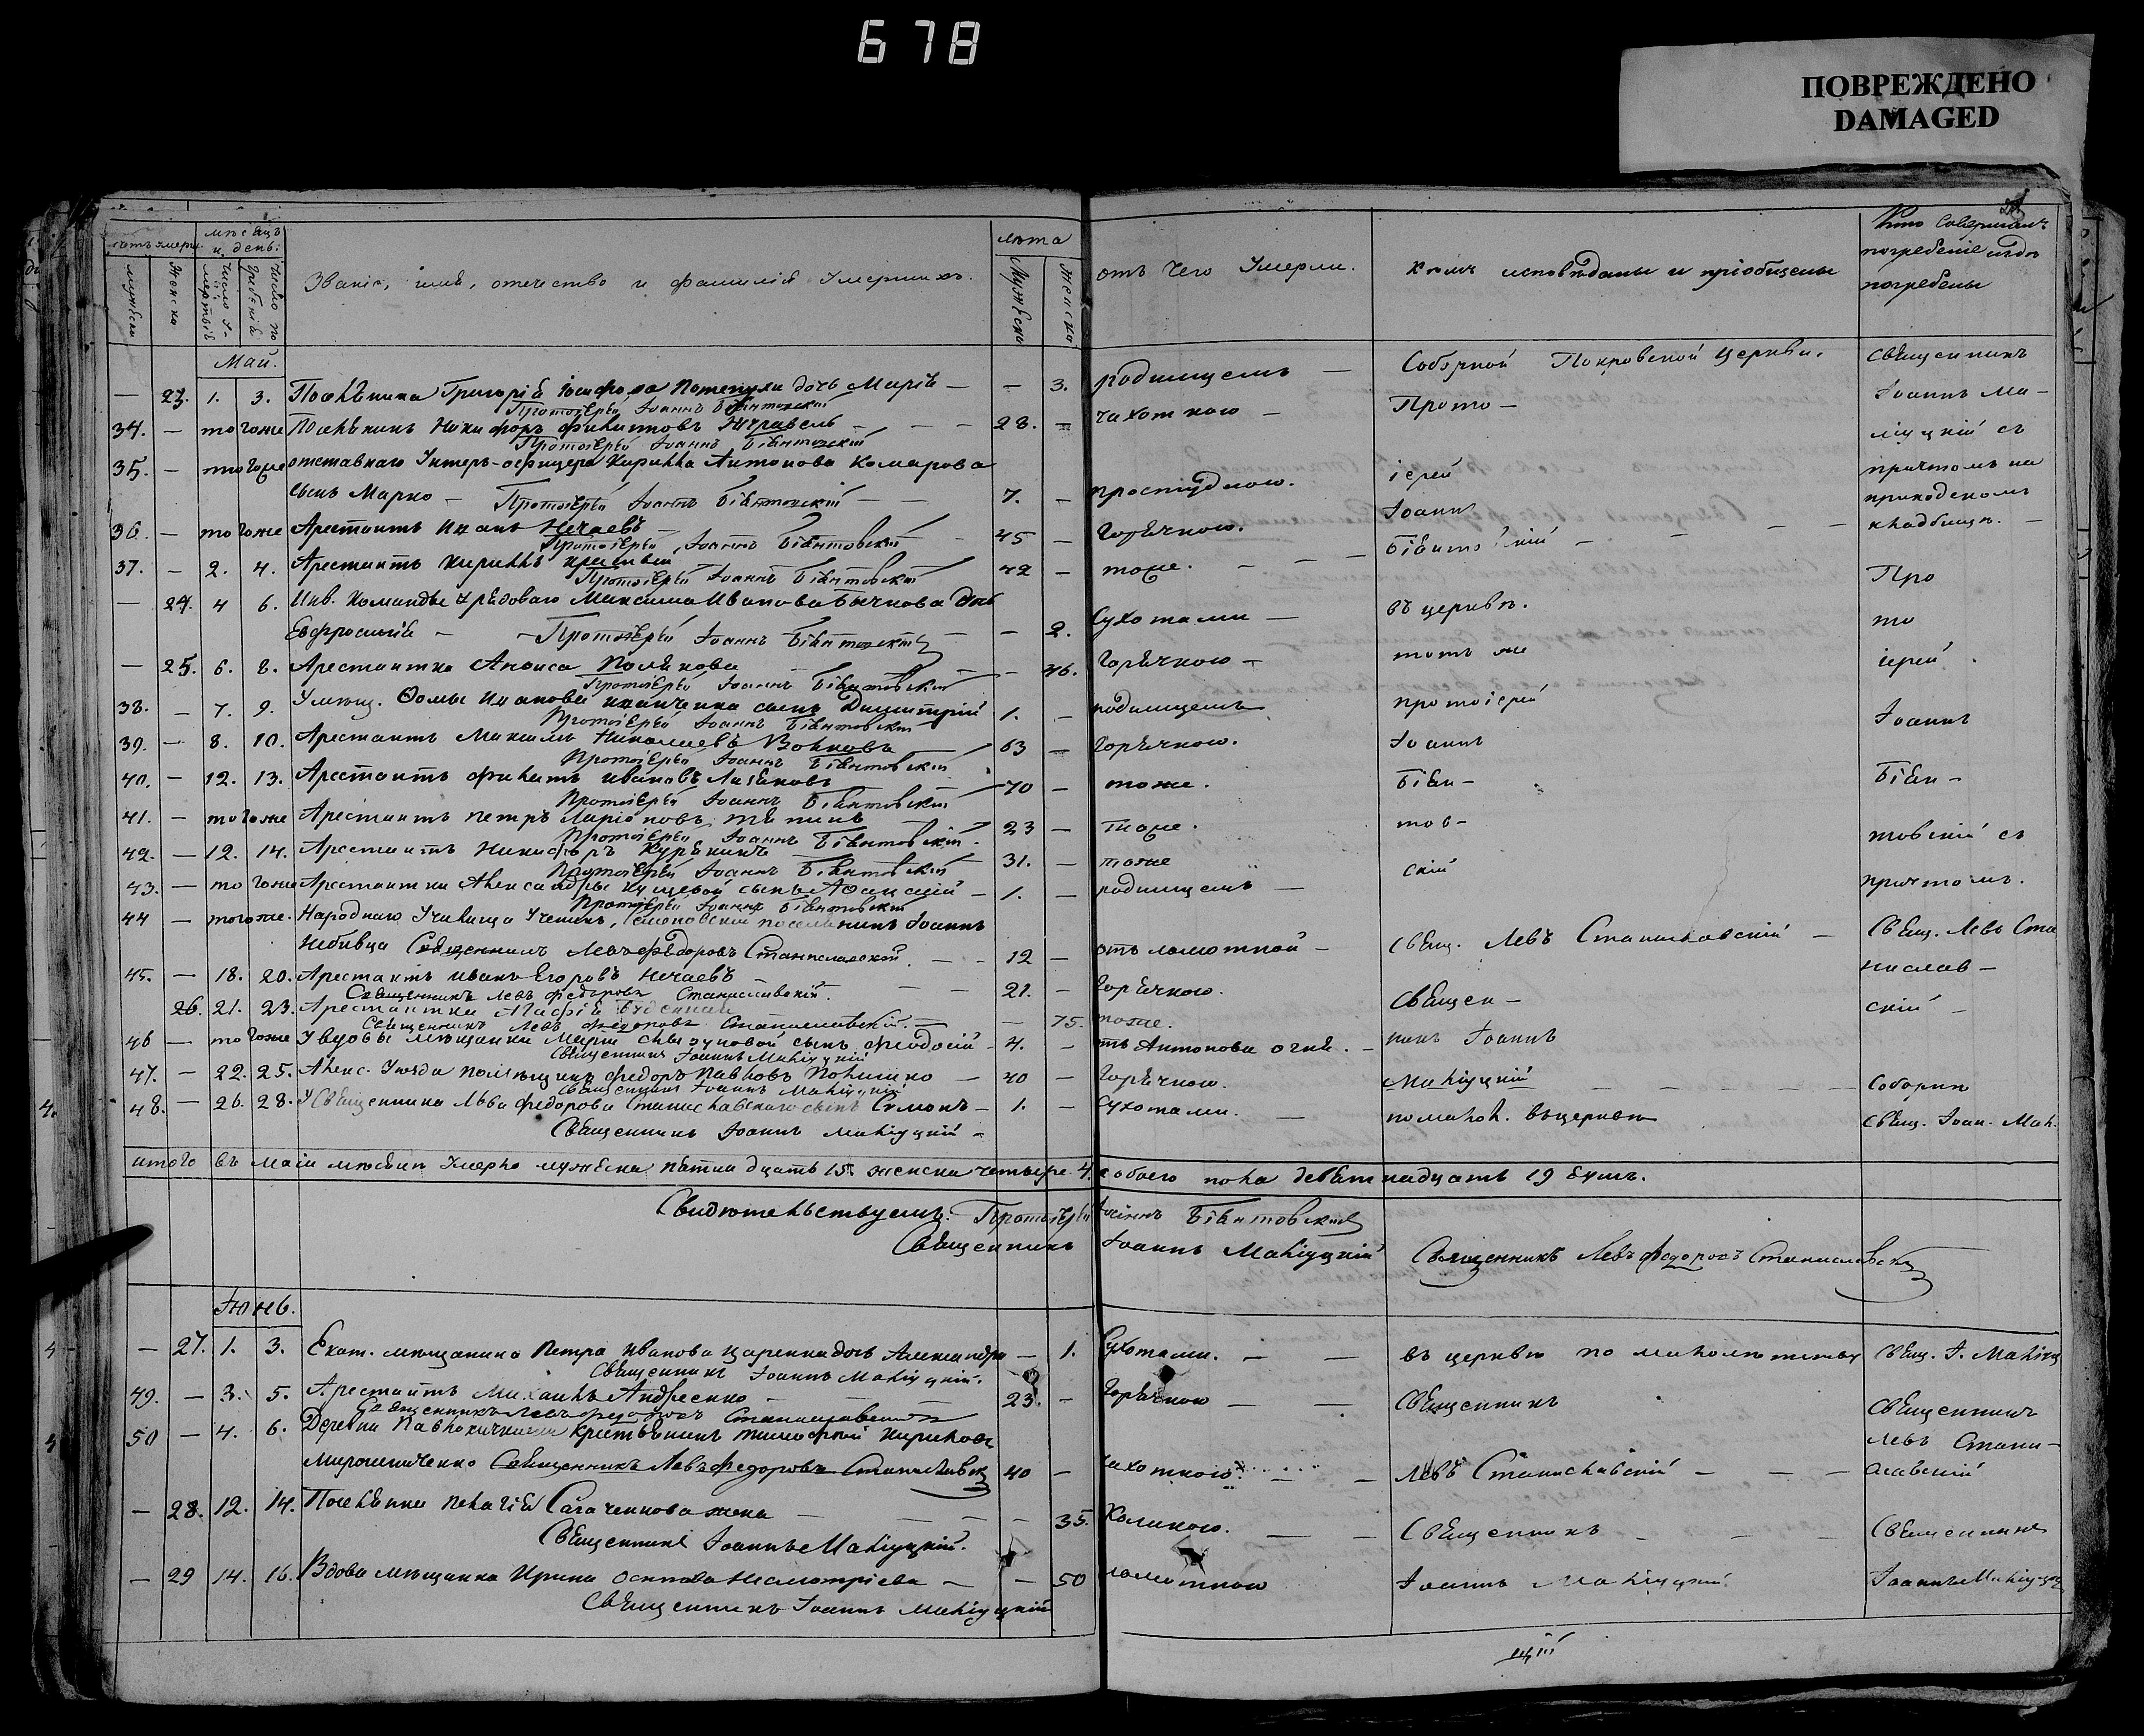 678
ПОВРЕЖДЕНО
DAMAGED
мѣсяцъ и день:
лѣта
Званіе, имя, отечество и фамилія умершихъ.
Мужеска
Женска
отъ чего умерли.
кѣмъ исповѣданы и пріобщены
Кто совершалъ погребеніе и гдѣ погребены
Май.
— 23. 1. 3. дочь Марія — — 3. родимцемъ — Соборной Покровской церкви. Священникъ
Протоіерей Іоаннъ Бѣнтовскій
Іоаннъ Ма-
34. — тогоже Никифоръ Филиповъ Журавель — — — 28. — чахоткою — Прото-
Протоіерей Іоаннъ Бѣнтовскій
ліуцкій съ
35. — тогоже отставнаго Унтеръ-офицера Кирилла Антонова Комарова
іерей
причтомъ на
сынъ Марко — Протоіерей Іоаннъ Бѣнтовскій — — 7. — простудною.
Іоаннъ
приходскомъ
36. — тогоже Арестантъ Иванъ Нечаевъ — 45 — Горячкою.
кладбищѣ. —
Протоіерей Іоаннъ Бѣнтовскій
37. — 2. 4. Арестантъ Кириллъ 42 — тоже.
Протоіерей Іоаннъ Бѣнтовскій
Про
— 24. 4 6. Инв. Команды рядоваго Максима Иванова Бычкова дочь
въ церкви.
то
Евфросинія — Протоіерей Іоаннъ Бѣнтовскій — — 2. Сухотами —
тотъ же
іерей
— 25. 6. 8. Арестантка Анфиса Полякова — — 46. Горячкою —
Протоіерей Іоаннъ Бѣнтовскій
протоіерей
38. — 7. 9. У мѣщ. Ѳомы Иванова сынъ Димитрій 1. — родимцемъ
Іоаннъ
Протоіерей Іоаннъ Бѣнтовскій
Іоаннъ
39. — 8. 10. Арестантъ Максимъ Николаевъ Волковъ — 63 — Горячкою.
Протоіерей Іоаннъ Бѣнтовскій
Бѣн-
Бѣн-
40. — 12. 13. Арестантъ Филипъ Ивановъ — 70 — тоже.
Протоіерей Іоаннъ Бѣнтовскій
тов-
41. — тогоже Арестантъ Петръ Ларіоновъ — 23 — тоже.
товскій съ
Протоіерей Іоаннъ Бѣнтовскій
42. — 12. 14. Арестантъ Никифоръ Курякинъ 31. — тоже
скій
Протоіерей Іоаннъ Бѣнтовскій
43. — тогоже Арестантки Александры сынъ Аѳанасій — 1. — родимцемъ —
причтомъ.
Протоіерей Іоаннъ Бѣнтовскій
44 — тогоже. Народнаго Училища Ученикъ, поселянинъ Іоаннъ
Свящ. Левъ Станиславскій —
Свящ. Левъ Ста
Небивца Священникъ Левъ Федоровъ Станиславскій. — — 12 — отъ ломотной —
нислав-
45. — 18. 20. Арестантъ Иванъ Егоровъ Нечаевъ — — 21. — Горячкою.
Священникъ Левъ Федоровъ Станиславскій.
Священ-
скій —
26. 21. 23. Арестантка — 75. тоже.
Священникъ Левъ Федоровъ Станиславскій.
46 — тогоже У вдовы мѣщанки Маріи сынъ Феодосій — 4. — отъ Антонова огня. — никъ Іоаннъ
Священникъ Іоаннъ Маліуцкій
47. — 22. 25. Алекс. Уѣзда помѣщикъ Федоръ Павловъ — 40 — Горячкою. Маліуцкій
Священникъ Іоаннъ Маліуцкій
48. — 26. 28. У Священника Льва Федорова Станиславскаго сынъ Симонъ — 1. — Сухотами. — въ церкви
Свящ. Іоан. Мал.
Священникъ Іоаннъ Маліуцкій —
итого въ маіи мѣсяцѣ умерло мужеска пятнадцать 15. женска четыре 4. обоего пола девятнадцать 19 душъ.
Свидѣтельствуемъ: Протоіерей Іоаннъ Бѣнтовскій
Священникъ Іоаннъ Маліуцкій Священникъ Левъ Федоровъ Станиславскій
Іюнь.
— 27. 1. 3. Екат. мѣщанина Петра Иванова дочь Александра — 1. Сухотами. — — въ церкви Свящ. І. Маліуц
Священникъ Іоаннъ Маліуцкій.
49. — 3. 5. Арестантъ Михаилъ Андреенко — — 23. — Горячкою — — Священникъ Священникъ
Священникъ Левъ Федоровъ Станиславскій
50 — 4. 6. Деревни крестьянинъ Тимофей Кириловъ
Левъ Стани-
Мирошниченко Священникъ Левъ Федоровъ Станиславскій 40 — чахоткою. — Левъ Станиславскій — — — славскій
— 28. 12. 14. Пелагія жена — — — 35. Холикою. — — Священникъ — — — Священникъ
Священникъ Іоаннъ Маліуцкій.
— 29 14. 16. Вдова мѣщанка Ирина — — 50 ломотною Іоаннъ Маліуцкій. Іоаннъ Маліуцкій
Священникъ Іоаннъ Маліуцкій